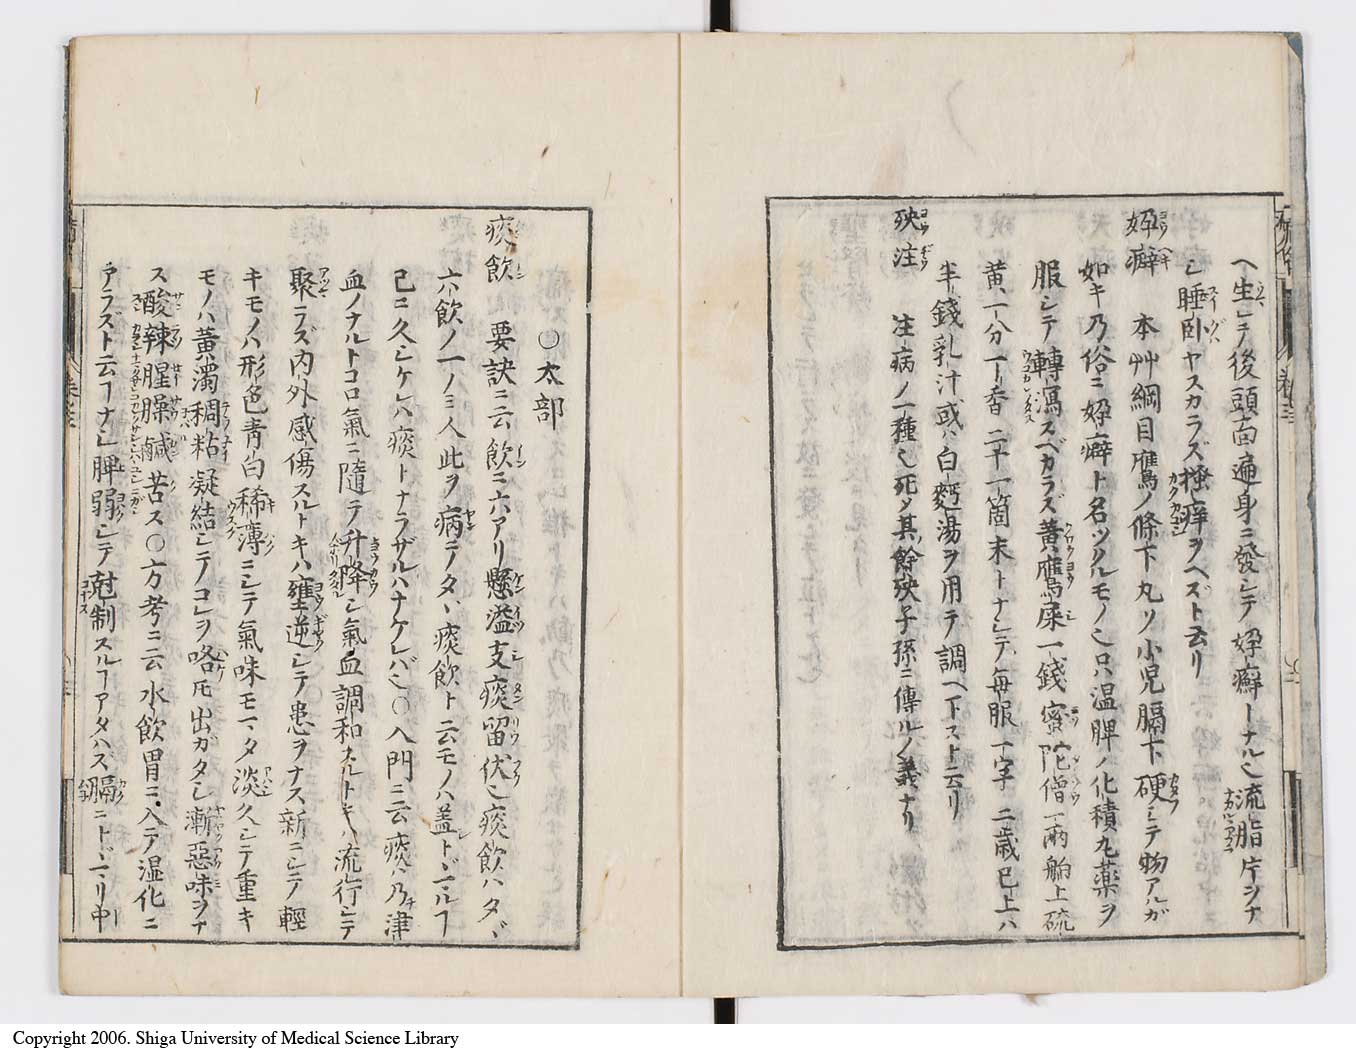 ヘ生シテ後頭面遍身ニ發シテ奶癬トナル也流脂片シナ
シ睡臥ヤスカラズ搔痒ヲヘズト云リ
奶癖 本艸綱目鷹ノ條下丸ソ小児膈下硬シテ物アルガ
如キ乃俗ニ奶癖ト名ツクルモノ也只温脾ノ化積丸薬ヲ
服シテ轉瀉スベカラズ黄鷹屎一錢蜜陀僧一兩舶上硫
黄一分丁香二十一箇末トナシテ每服一字二歳已上ハ
半錢乳汁或ハ白麪湯ヲ用テ調ヘ下スト云リ
殃注 注病ノ一種也死メ其餘殃子孫ニ傳ルノ義ナリ
○太部
痰飲 要訣ニ云飲ニ六アリ懸溢支痰留伏也痰飲ハタヾ
六飲ノ一ノミ人此ヲ病テタヽ痰飲ト云モノハ蓋トヾマルヿ
已ニ久シケレハ痰トナラザルハナケレバ也○入門ニ云痰ハ乃津
血ノナルトコロ氣ニ隨テ升降シ氣血調和スルトキハ流行シテ
聚ラズ内外感傷スルトキハ壅逆シテ患ヲナス新ニシテ輕
キモノハ形色青白稀薄ニシテ氣味モマタ淡久シテ重キ
モノハ黃濁稠粘凝結シテコレヲ咯𪜈出ガタシ漸惡味ヲナ
ス酸辣腥臊鹹苦ス○方考ニ云水飲胃ニ入テ温化ニ
アラズト云ヿナシ脾弱シテ尅制スルヿアタハス膈ニトヾマリ中
卷之三
卷之三
Copyright 2006. Shiga University of Medical Science Library